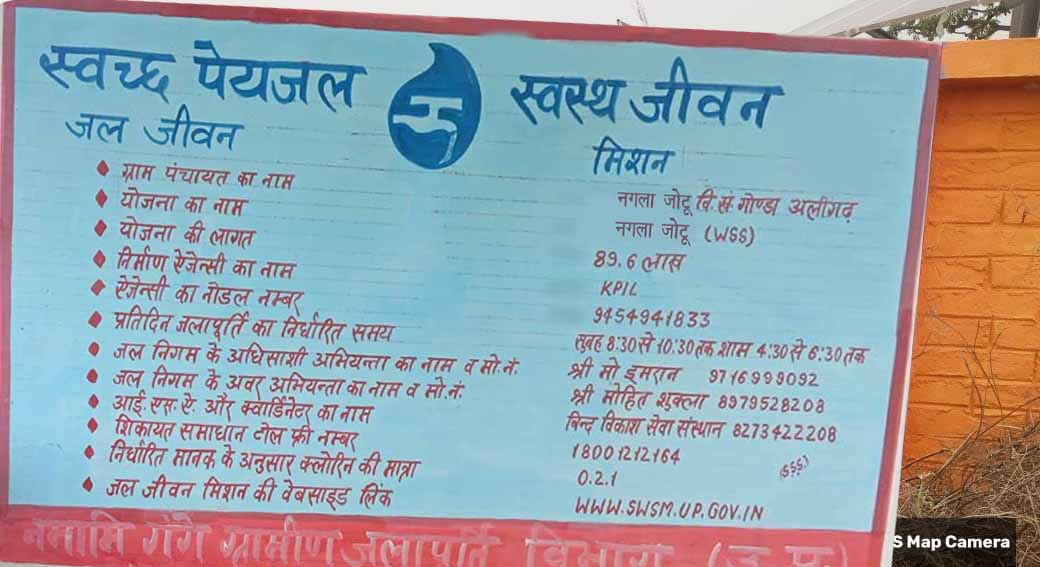 स्वच्छ पेयजल स्वस्थ जीवन
जल जीवन मिशन
ग्राम पंचायत का नाम नगला जोटू वि.सं. गोण्डा अलीगढ़
योजना का नाम नगला जोटू (WSS)
योजना की लागत 89.6 लाख
निर्माण ऐजेन्सी का नाम KPIL
ऐजेन्सी का नोडल नम्बर 9454941833
प्रतिदिन जलापूर्ति का निर्धारित समय सुबह 8:30 से 10:30 तक शाम 4:30 से 6:30 तक
जल निगम के अधिसाशी अभियन्ता का नाम व मो.नं: श्री मो इमरान 9716999092
जल निगम के अवर अभियन्ता का नाम व मो.नं: श्री मोहित शुक्ला 8979528208
आई.एस.ऐ. और क्वार्डिनेटर का नाम बिन्द विकाश सेवा संस्थान 8273422208
शिकायत समाधान टोल फ्री नम्बर 18001212164
निर्धारित मानक के अनुसार क्लोरिन की मात्रा 0.2.1
जल जीवन मिशन की वेबसाइड लिंक WWW.SWSM.UP.GOV.IN
नमामि गंगे ग्रामीण जलापूर्ति विभाग (उ.प्र.)
S Map Camera